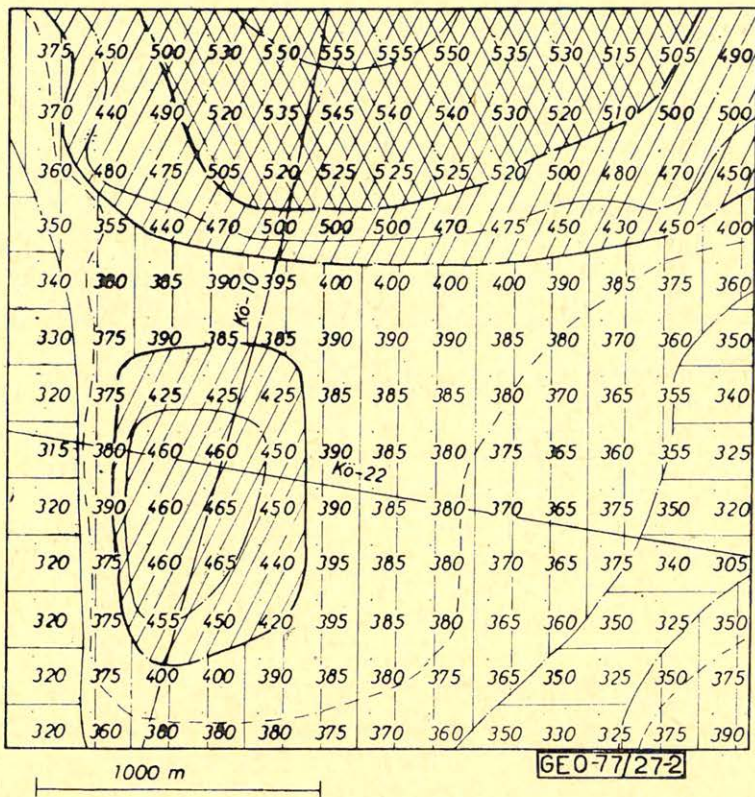 375 450 500 530 550 555 555 550 535 530 515 505 490
370 440 490 520 535 545 540 540 530 520 510 500 500
360 480 475 505 520 525 525 525 520 500 480 470 450
350 355 440 470 500 500 500 470 475 450 430 450 400
340 380 385 390 395 400 400 400 400 390 385 375 360
Kö-10
330 375 390 385 385 390 390 390 385 380 370 360 350
320 375 425 425 425 385 385 385 380 370 365 355 340
315 380 460 460 450 390 385 380 375 365 360 355 325
Kö-22
320 390 460 465 450 390 385 380 370 365 375 350 320
320 375 460 465 440 395 385 380 370 365 375 340 305
320 375 455 450 420 395 385 380 365 360 350 325 350
320 375 400 400 390 385 380 375 365 350 325 350 375
320 360 380 380 380 375 370 360 350 330 325 375 390
1000 m
GEO-77/27-2